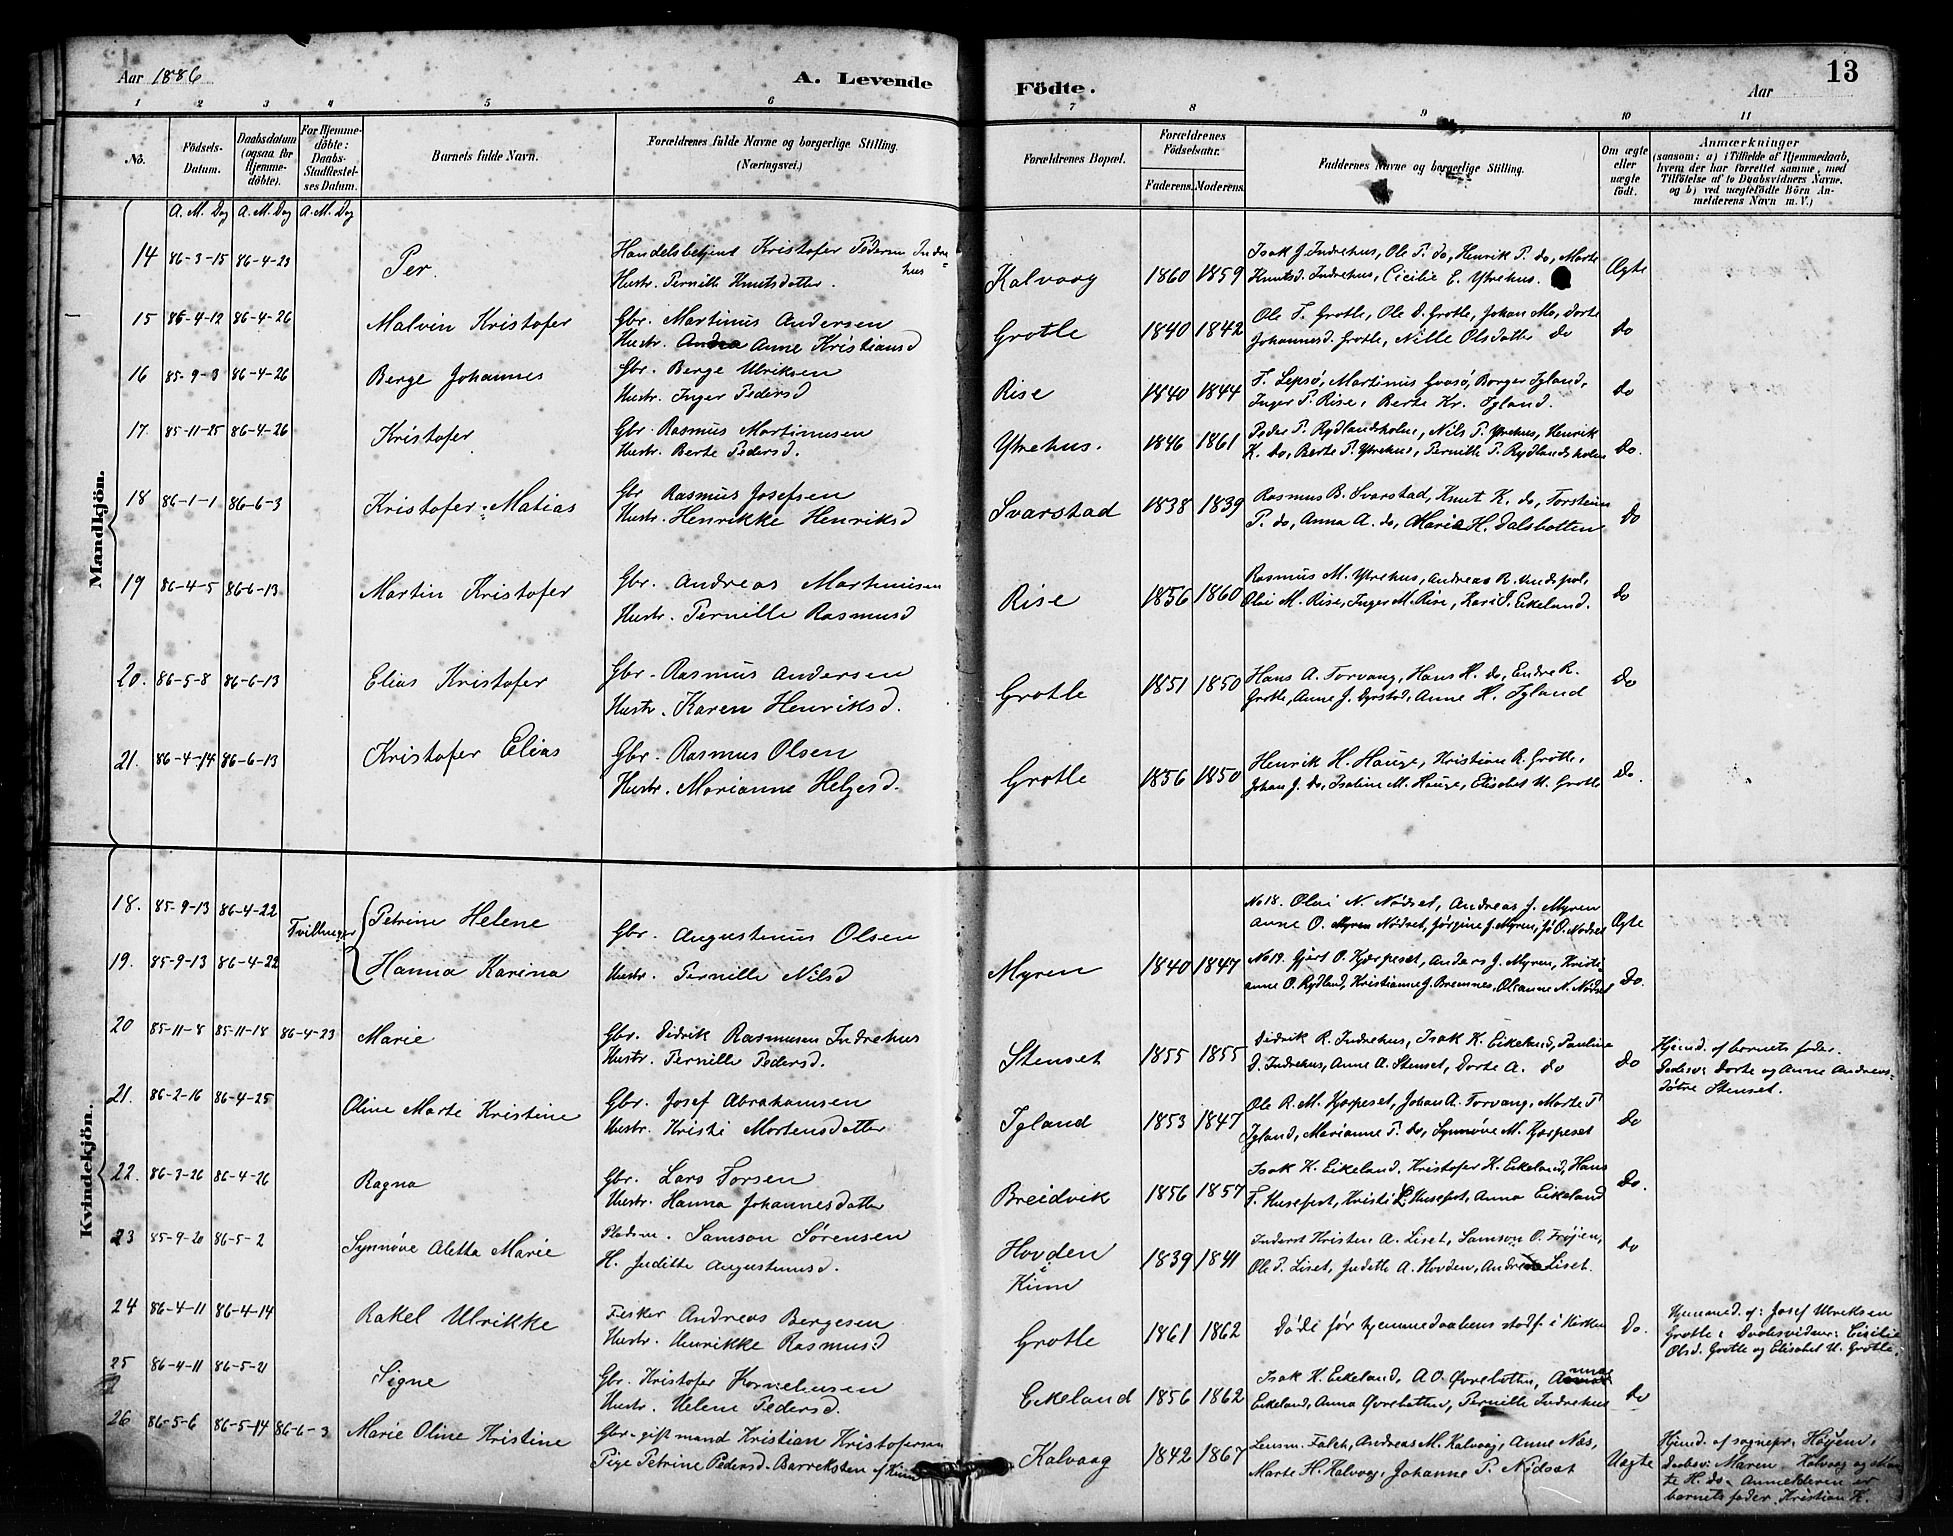 Aar 1886 A. Levende Födte. Aar 13
1 2 3 4 5 6 7 8 9 10 11
No. Födsels-Datum. Daabsdatum (ogsaa for Hjemme-döbte). For Hjemme-döbte: Daabs-Stadfæstel-ses Datum. Barnets fulde Navn. Forældrenes fulde Navne og borgerlige Stilling. (Næringsvei.) Forældrenes Bopæl. Forældrenes Födselsaar. Faderens. Moderens. Faddernes Navne og borgerlige Stilling. Om ægte eller uægte födt. Anmærkninger (saasom: a) i Tilfælde af Hjemmedaab, hvem der har forrettet samme, med Tilföielse af to Daabsvidners Navne, og b) ved uægtefödte Börn An-melderens Navn m. V.)
A. M. Dag A. M. Dag A. M. Dag
Mandkjön.
14 86-3-15 86-4-23 Per. Handelsbetjent Kristofer Pedersen Indre-hus
Hustr. Pernille Knutsdatter. Kalvaag 1860 1859 Isak J. Indrehus, Ole P. do, Henrik P. do, Marte
Knutsd. Indrehus, Cicilie E. Ytrehus. Ægte
15 86-4-12 86-4-26 Malvin Kristofer Gbr. Martinus Andersen
Hustr. Anne Kristiansd Grotle 1840 1842 Ole F. Grotle, Ole D. Grotle, Johan Mo, Dorte
Johannesd. Grotle, Nille Olsdatter do do
16 85-9-3 86-4-26 Berge Johannes Gbr. Berge Ulriksen
Hustr. Inger Pedersd Rise 1840 1844 F. Lepsø, Martinus Gvasø, Borger Igland,
Inger P. Rise, Berte Kr. Igland. do
17. 85-11-25 86-4-26 Kristofer Gbr. Rasmus Martinusen
Hustr. Berte Pedersd. Ytrehus. 1846 1861 Peder P. Rydlandsholm, Nils P. Ytrehus, Henrik
K. do, Berte P. Ytrehus, Pernille P. Rydlandsholm do.
18 86-1-1 86-6-3 Kristofer Matias Gbr Rasmus Josefsen
Hustr. Henrikke Henriksd Svarstad 1838 1839 Rasmus B. Svarstad, Knut K. do, Torstein
P. do, Anna A. do, Marie H. Dalsbotten do
19 86-4-5 86-6-13 Martin Kristofer Gbr. Andreas Martinusen
Hustr. Pernille Rasmusd Rise 1856 1860 Rasmus M. Ytrehus, Andreas R.
Olai M. Rise, Inger M. Rise, Kari J. Eikeland. do
20. 86-5-8 86-6-13 Elias Kristofer Gbr. Rasmus Andersen
Hustr. Karen Henriksd. Grotle 1851 1850 Hans A. Torvang, Hans H. do, Endre R.
Grotle, Anne J. Dyrstad, Anne H. Igland do
21. 86-4-14 86-6-13 Kristofer Elias Gbr. Rasmus Olsen
Hustr. Marianne Helgesd. Grotle 1856 1850 Henrik H. Hauge, Kristian R. Grotle,
Johan J. do, Isaline M. Hauge, Elisabet U. Grotle do.
Kvindekjön.
18. 85-9-13 86-4-22 Tvillinger Petrine Helene Gbr. Augustinus Olsen No 18. Olai N. Nødset, Andreas J. Myren
Anne O. Nødset, Jørgine J. Myren, O. Nødset Ægte
19. 85-9-13 86-4-22 Hanna Karina Hustr. Pernille Nilsd Myren 1840 1847 No 19. Gjert O. Kjerpeset, Anders J. Myren, Kristi-
anne O. Rydland, Kristianne J. Bremnes, Oleanne N. Nødset do.
20 85-11-8 85-11-18 86-4-23 Marie Gbr. Didrik Rasmusen Indrehus
Hustr. Pernille Pedersd. Stenset 1855 1855 Didrik R. Indrehus, Isak K. Eikeland, Pauline
D. Indrehus, Anne A. Stenset, Dorte A. do do Hjemd. af barnets fader.
Daabsv: Dorte og Anne Andreas-
døtre Stenset.
21. 86-2-16 86-4-25 Oline Marte Kristine Gbr. Josef Abrahamsen
Hustr. Kristi Mortensdatter Igland 1853 1847 Ole R. M. Kjerpeset, Johan A. Torvang, Marte P
Igland, Marianne P. do, Synnøve M. Kjerpeset do
22. 86-3-26 86-4-26 Ragna Gbr. Lars Torsen
Hustr. Hanna Johannesdatter Breidvik 1856 1857 Isak K. Eikeland, Kristofer K. Eikeland, Hans
T. Husefest, Kristi L. Husefest, Anna Eikeland do.
23 85-9-20 86-5-2 Synnøve Aletta Marie Pladsm. Samson Sørensen
H. Juditte Augustinusd. Hovden i Kinn 1839 1841 Inderst Kristen A. Liset, Samson O. Frøjen,
Ole P. Liset, Judette A. Hovden, Liset. do
24 86-4-11 86-4-14 Rakel Ulrikke Fisker Andreas Bergesen
Hustr. Henrikke Rasmusd Grotle 1861 1862 Døde før hjemmedaabens stadf. i Kirken do. Hjemmed. af: Josef Ulriksen
Grotle: Daabsvidner: Cicilie
Olsd. Grotle og Elisabet U. Grotle.
25 86-4-11 86-5-21 Signe Gbr. Kristofer Korneliusen
Hustr. Helene Pedersd. Eikeland 1856 1862 Isak K. Eikeland, A. O. Øvrebotten, Anna
Eikeland, Anna Øvrebotten, Pernille Indrehus do
26 86-5-6 86-5-14 86-6-3 Marie Oline Kristine Gbr. gift mand Kristian Kristofersen
Pige Petrine Pedersd. Barreksten af Kinn Kalvaag 1842 1867 Lensm. Falch, Andreas M. Kalvaag, Anne Næs,
Marte H. Kalvaag, Johanne P. Nødset Uægte Hjemd. af sognepr. Høyem.
Daabsv: Maren Kalvaag og Mar-
te H. do. Anmelderen er
barnets fader, Kristian K.